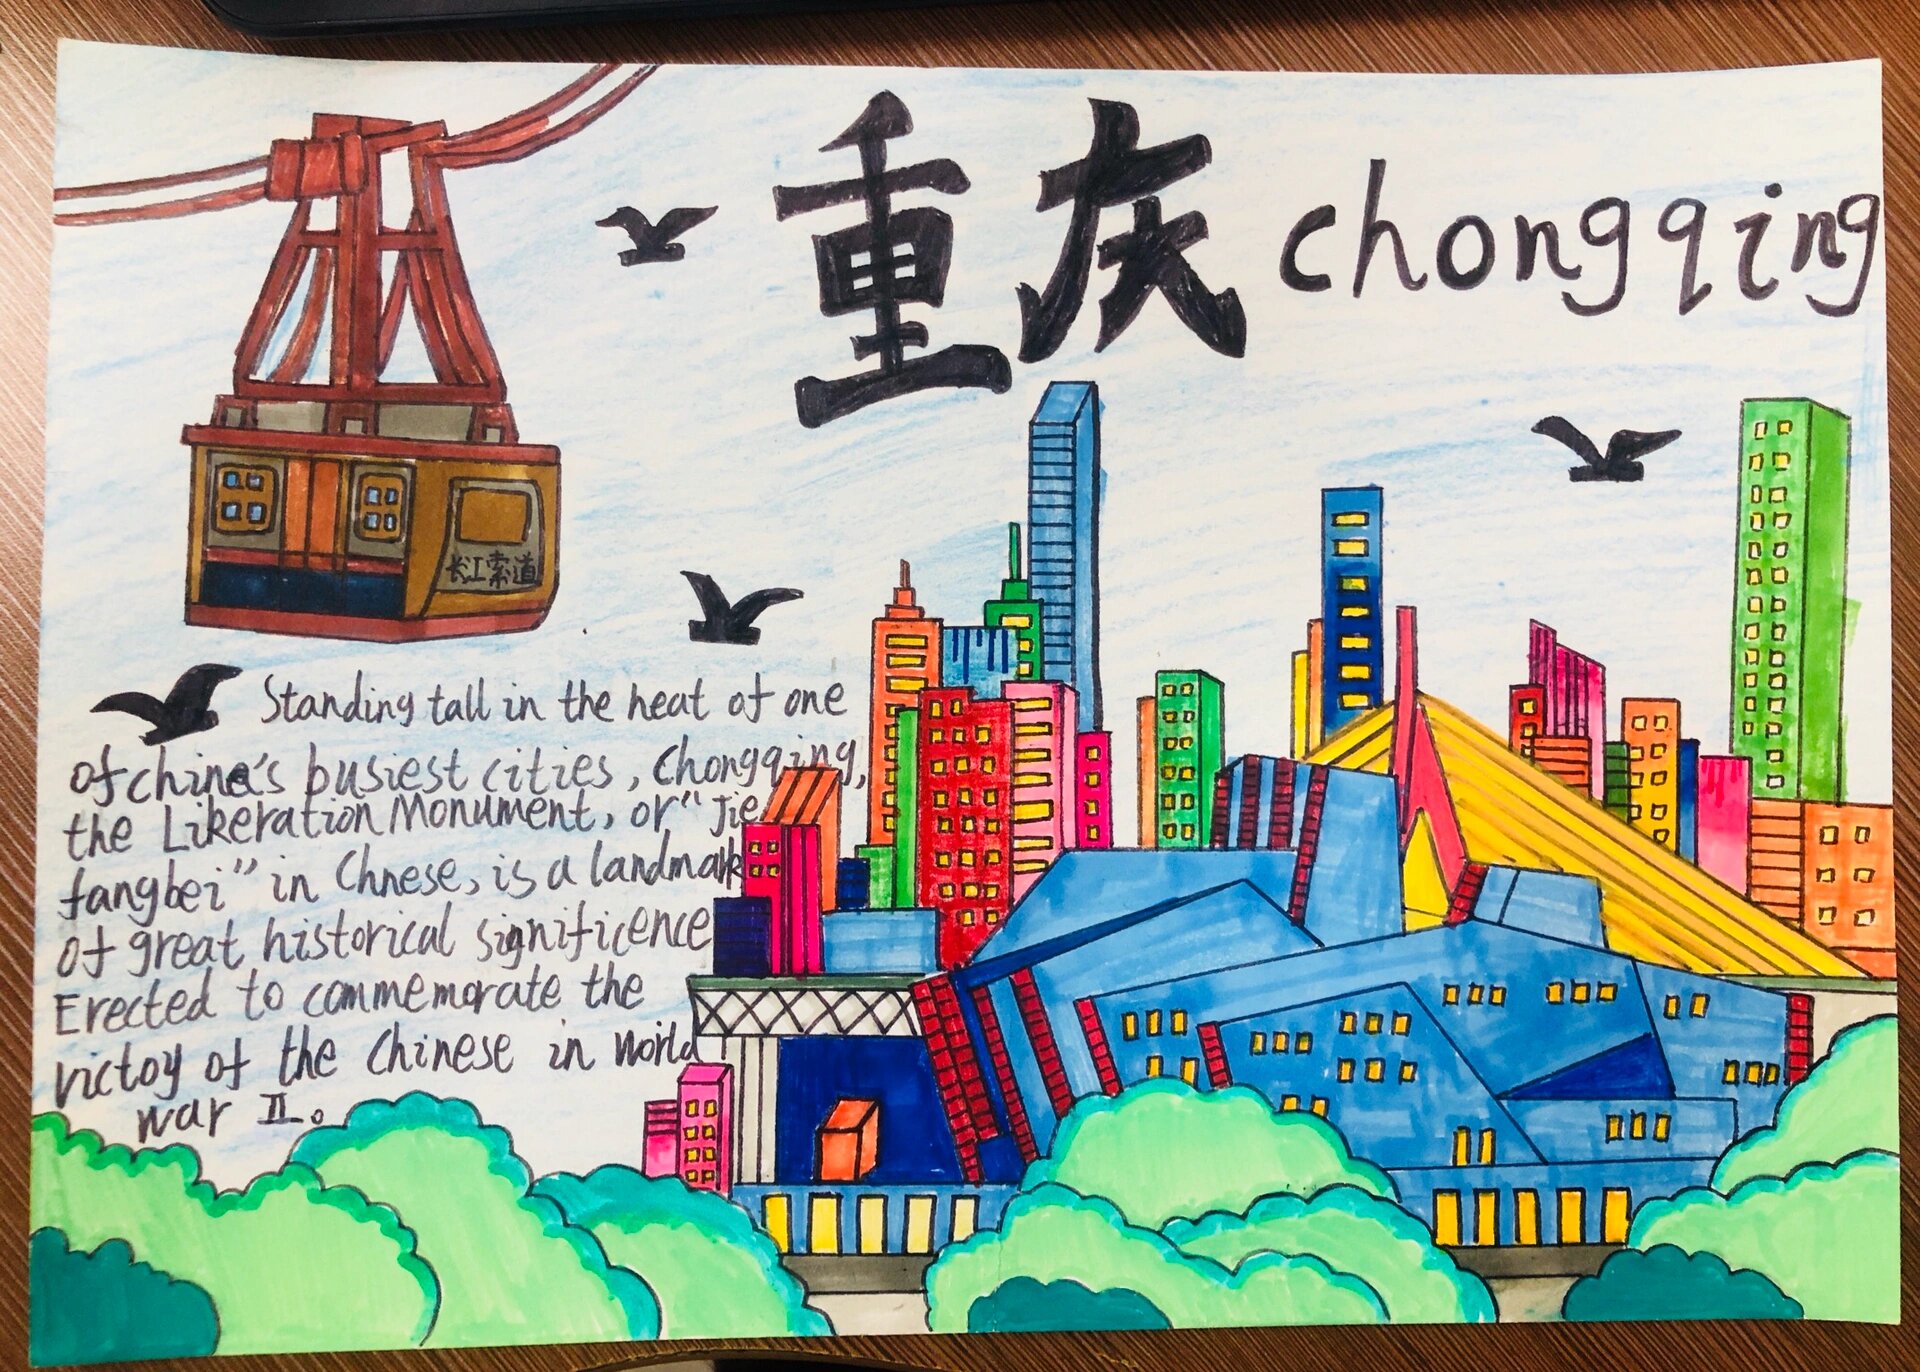 重庆 chongqing
长江索道
Standing tall in the heat of one
of china's busiest cities, Chongqing,
the Likeration Monument, or "Jie
fangbei" in Chnese, is a landmark
of great historical significence
Erected to commemorate the
victoy of the Chinese in world
war II。